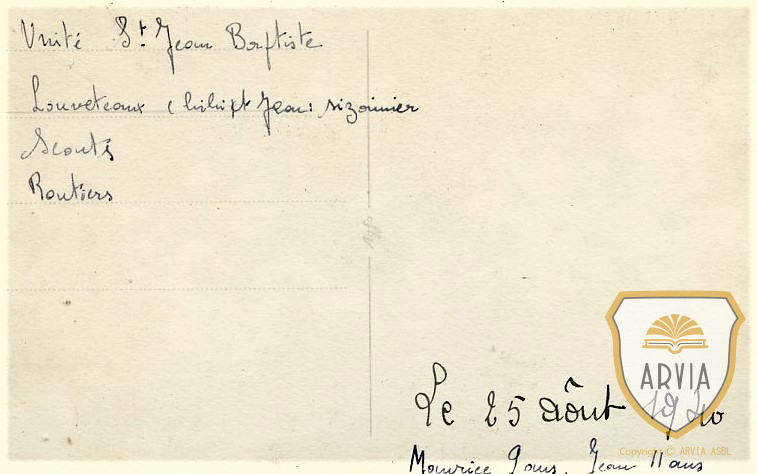 Unité St Jean Baptiste
Louveteaux ( Jean: sizainier
Scouts
Routiers
Agfa
Le 25 aôut 1940
Maurice Jean
ARVIA
Copyright © ARVIA ASBL